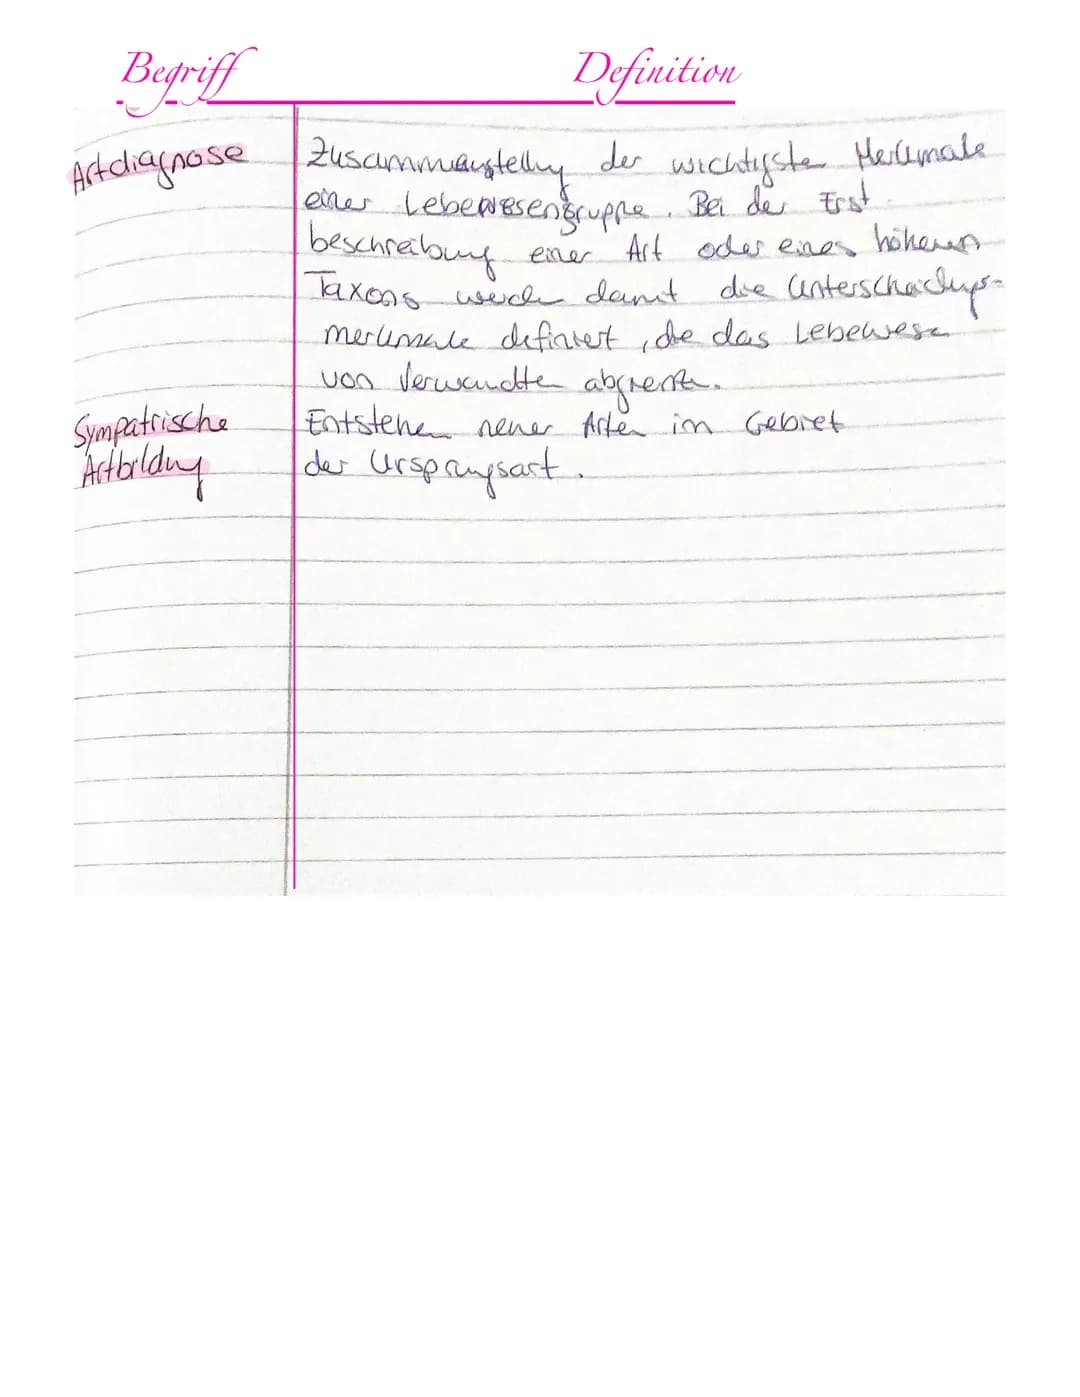 Begriff Definition
Artdiagnose Zusammenstellung der wichtigsten Merkmale
einer Lebewesengruppe. Bei der Erst
beschreibung einer Art oder eines höheren
Taxons werden damit die Unterscheidungs-
merkmale definiert, die das Lebewesen
von Verwandten abgrenzen.
Sympatrische Entstehen neuer Arten im Gebiet
Artbildung der Ursprungsart.